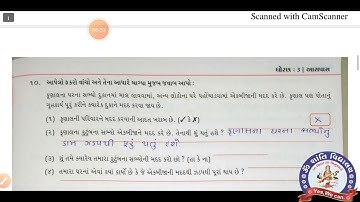 i
Scanned with CamScanner
ધોરણ : 3 | આસપાસ
૧૦. આપેલો ફકરો વાંચો અને તેના આધારે માગ્યા મુજબ જવાબ આપો :
કુણાલના ઘરના સભ્યો દુકાનમાં માલ લાવવામાં, અન્ય લોકોના ઘરે પહોંચાડવામાં એકબીજાની મદદ કરે છે. કુણાલ પણ પોતાનું
ગૃહકાર્ય પૂરું કરીને ક્યારેક દુકાને મદદ કરવા જાય છે.
(૧) કુણાલની પરિવારને મદદ કરવાની આદત ખરાબ છે. (✓ કે X) X
(૨) કુણાલના કુટુંબના સભ્યો એકબીજાને મદદ કરે છે. તેનાથી શું થતું હશે ? કુણાલના ઘરના સભ્યોનું
કામ ઝડપથી પૂરું થતું હશે
(૩) શું તમે ક્યારેય તમારા કુટુંબના સભ્યોની મદદ કરો છો ? (હા કે ના)
(૪) તમારા ઘરનાં એવાં કયાં કાર્યો છે કે જે એકબીજાની મદદથી ઝડપથી પૂરાં થાય છે ?
ૐ શાંતિ વિદ્યાલય
Yes, We Can